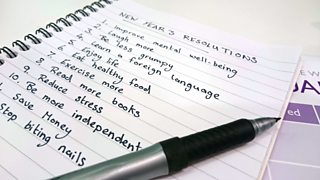 NEW YEAR'S RESOLUTIONS
Improve mental well-being
Laugh more
Be less grumpy
Learn a foreign language
Enjoy life
Eat healthy food
8. Exercise more
9. Read more books
10. Reduce stress
Be more independent
Save Money
Stop biting nails
ed